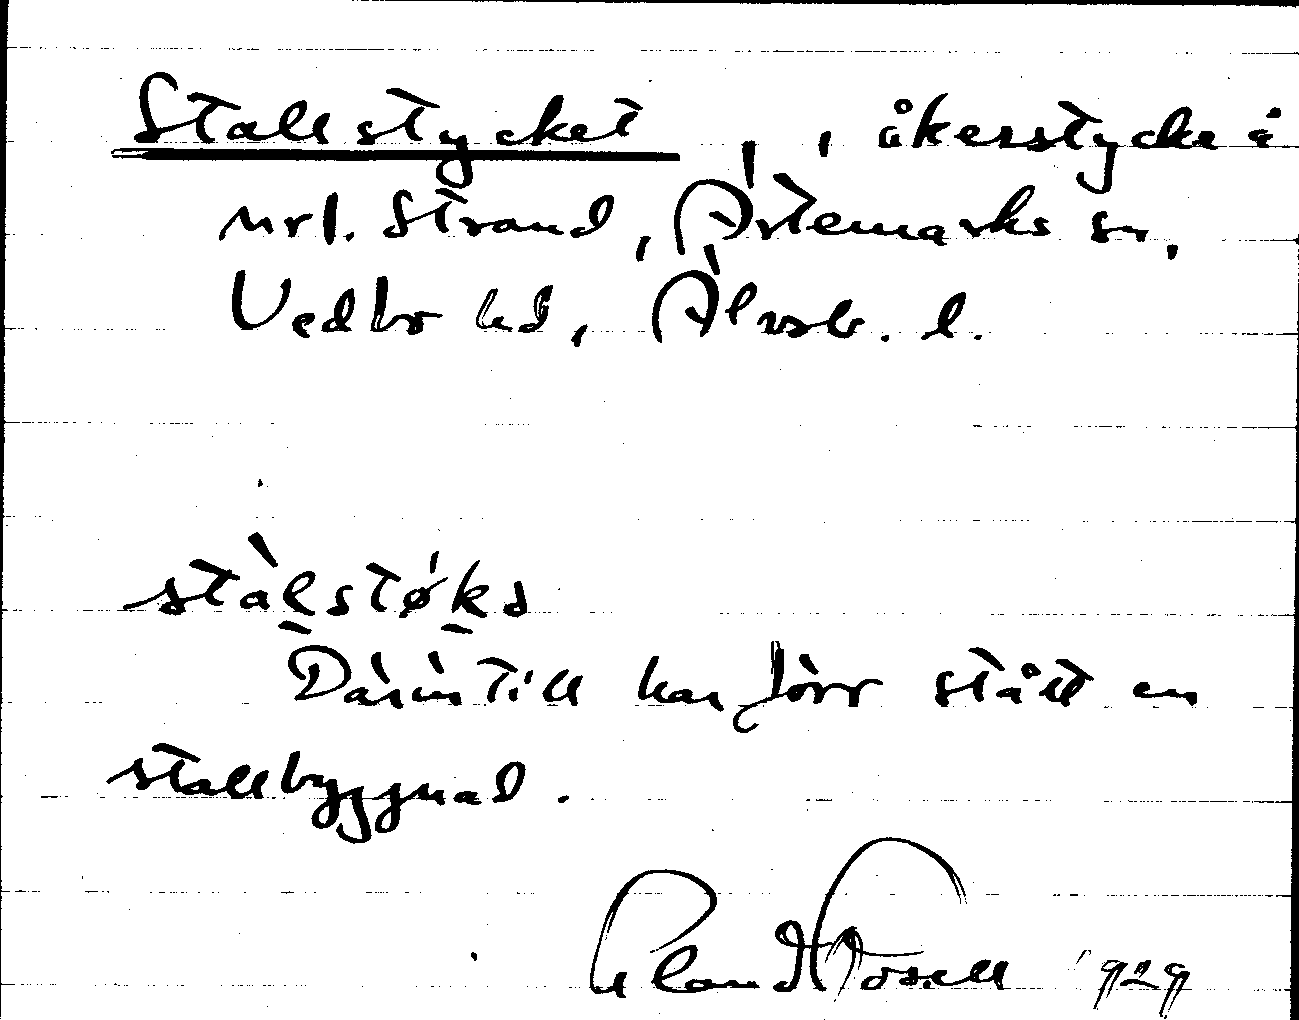 Stallstycket, , åkerstycke å
nrl. Strand, Ärtemarks sn,
Vedbo hd, Älvsb. l.
stàlstǿkə
Därintill har förr stått en
stallbyggnad.
Rosell 1929